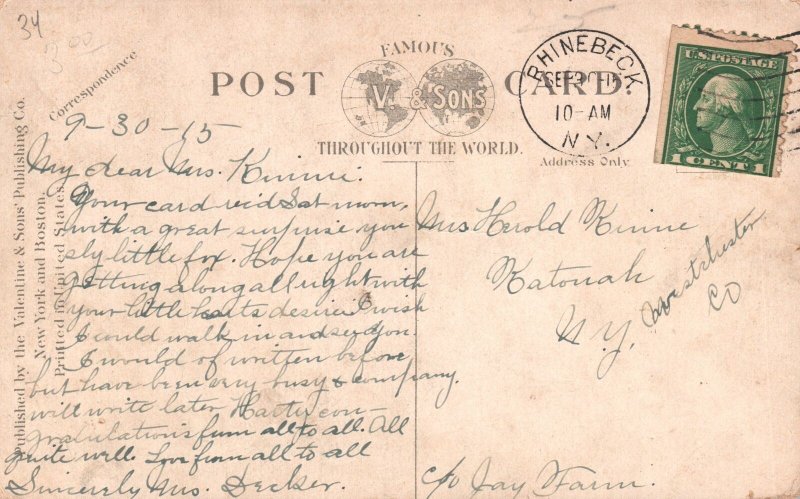 34
3 00
Published by the Valentine & Sons' Publishing Co.
New York and Boston.
Printed in United States.
Correspondence
POST CARD.
FAMOUS
V. & SONS
THROUGHOUT THE WORLD.
Address Only
RHINEBECK
SEP 30 15
10-AM
N.Y.
U.S. POSTAGE
1 CENT 1
9-30-15
My dear Mrs. Kinne:
Your card rec'd Sat morn,
with a great surprise you
sly little fox. Hope you are
getting along all right with
your little hearts desire. I wish
I could walk in and see you.
I would of written before,
but have been very busy & company.
will write later. Hearty con-
gratulations from all to all. All
quite well. Love from all to all
Sincerely Mrs. Decker.
Mrs Herold Kinne
Katonah
N.Y.
Westchester
Co
c/o Jay Farm.